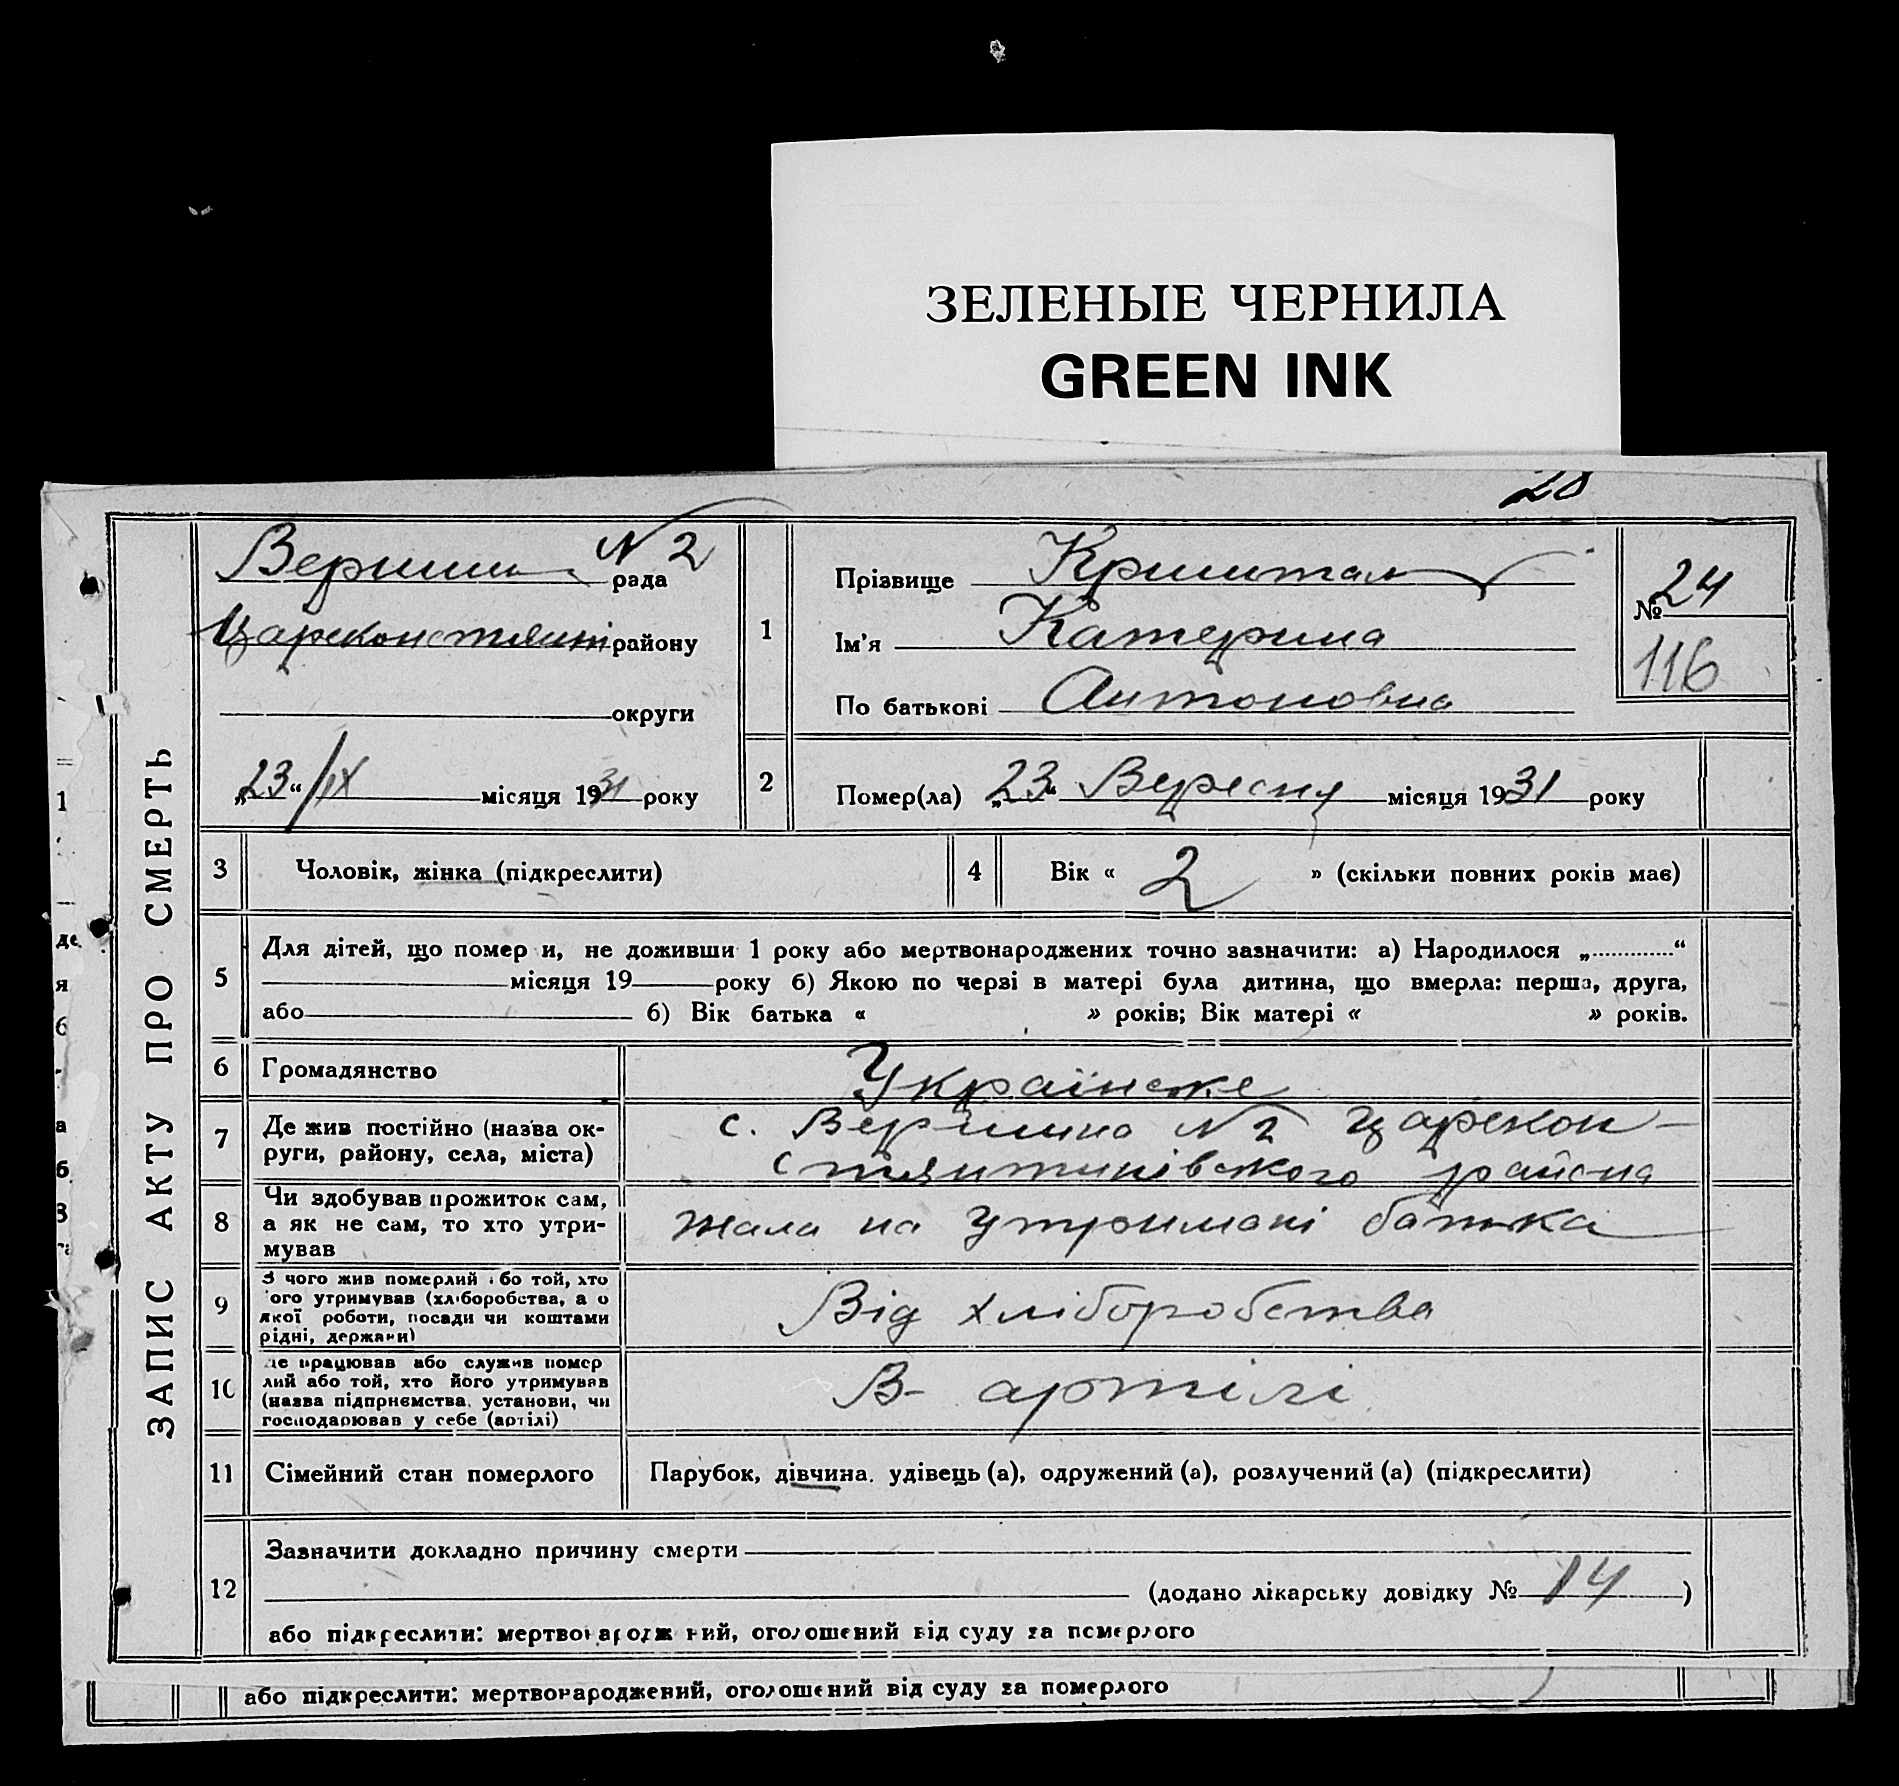 ЗЕЛЕНЫЕ ЧЕРНИЛА
GREEN INK
28
ЗАПИС АКТУ ПРО СМЕРТЬ
Вершин № 2 рада
Цареконстянт району
округи
„23“/ІХ місяця 1931 року
1
Прізвище Кришталь
Ім'я Катерина
По батькові Антоновна
№ 24
116
2 Помер(ла) „23“ Вересня місяця 1931 року
3 Чоловік, жінка (підкреслити)
4 Вік « 2 » (скільки повних років має)
5 Для дітей, що помер и, не доживши 1 року або мертвонароджених точно зазначити: а) Народилося „.............“
місяця 19 року б) Якою по черзі в матері була дитина, що вмерла: перша, друга,
або б) Вік батька « » років; Вік матері « » років.
6 Громадянство Українське
7 Де жив постійно (назва ок-
руги, району, села, міста)
с. Вершина № 2 Царекон-
стянтинівского района
8 Чи здобував прожиток сам,
а як не сам, то хто утри-
мував
жала на утримані батька
9 З чого жив померлий або той, хто
його утримував (хліборобства, а о
якої роботи, посади чи коштами
рідні, держави)
Від хліборобства
10 Де працював або служив помер
лий або той, хто його утримував
(назва підприємства, установи, чи
господарював у себе (артілі)
В- артілі
11 Сімейний стан померлого
Парубок, дівчина. удівець (а), одружений (а), розлучений (а) (підкреслити)
12 Зазначити докладно причину смерти
(додано лікарську довідку № 14)
або підкреслити: мертвонароджений, оголошений від суду за померлого
або підкреслити: мертвонароджений, оголошений від суду за померлого